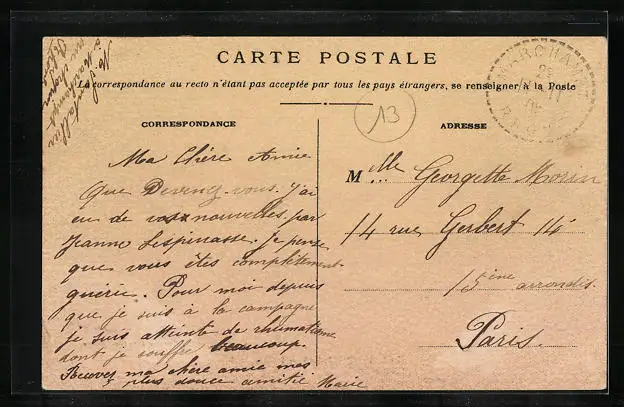 CARTE POSTALE
La correspondance au recto n'étant pas acceptée par tous les pays étrangers, se renseigner à la Poste
MARCHAMPT
RHÔNE
13
CORRESPONDANCE
Ma Chère Amie
Que Devenez-vous. J'ai
eu de vos nouvelles par
Jeanne Lespinasse. Je pense
que vous êtes complètement
guérie. Pour moi depuis
que je suis à la campagne
je suis atteinte de rhumatisme
dont je souffre beaucoup.
Recevez ma chère amie mes
plus douce amitié Marie
ADRESSE
Mlle Georgette Morin
14 rue Gerbert 14
15ème arrondis.
Paris.